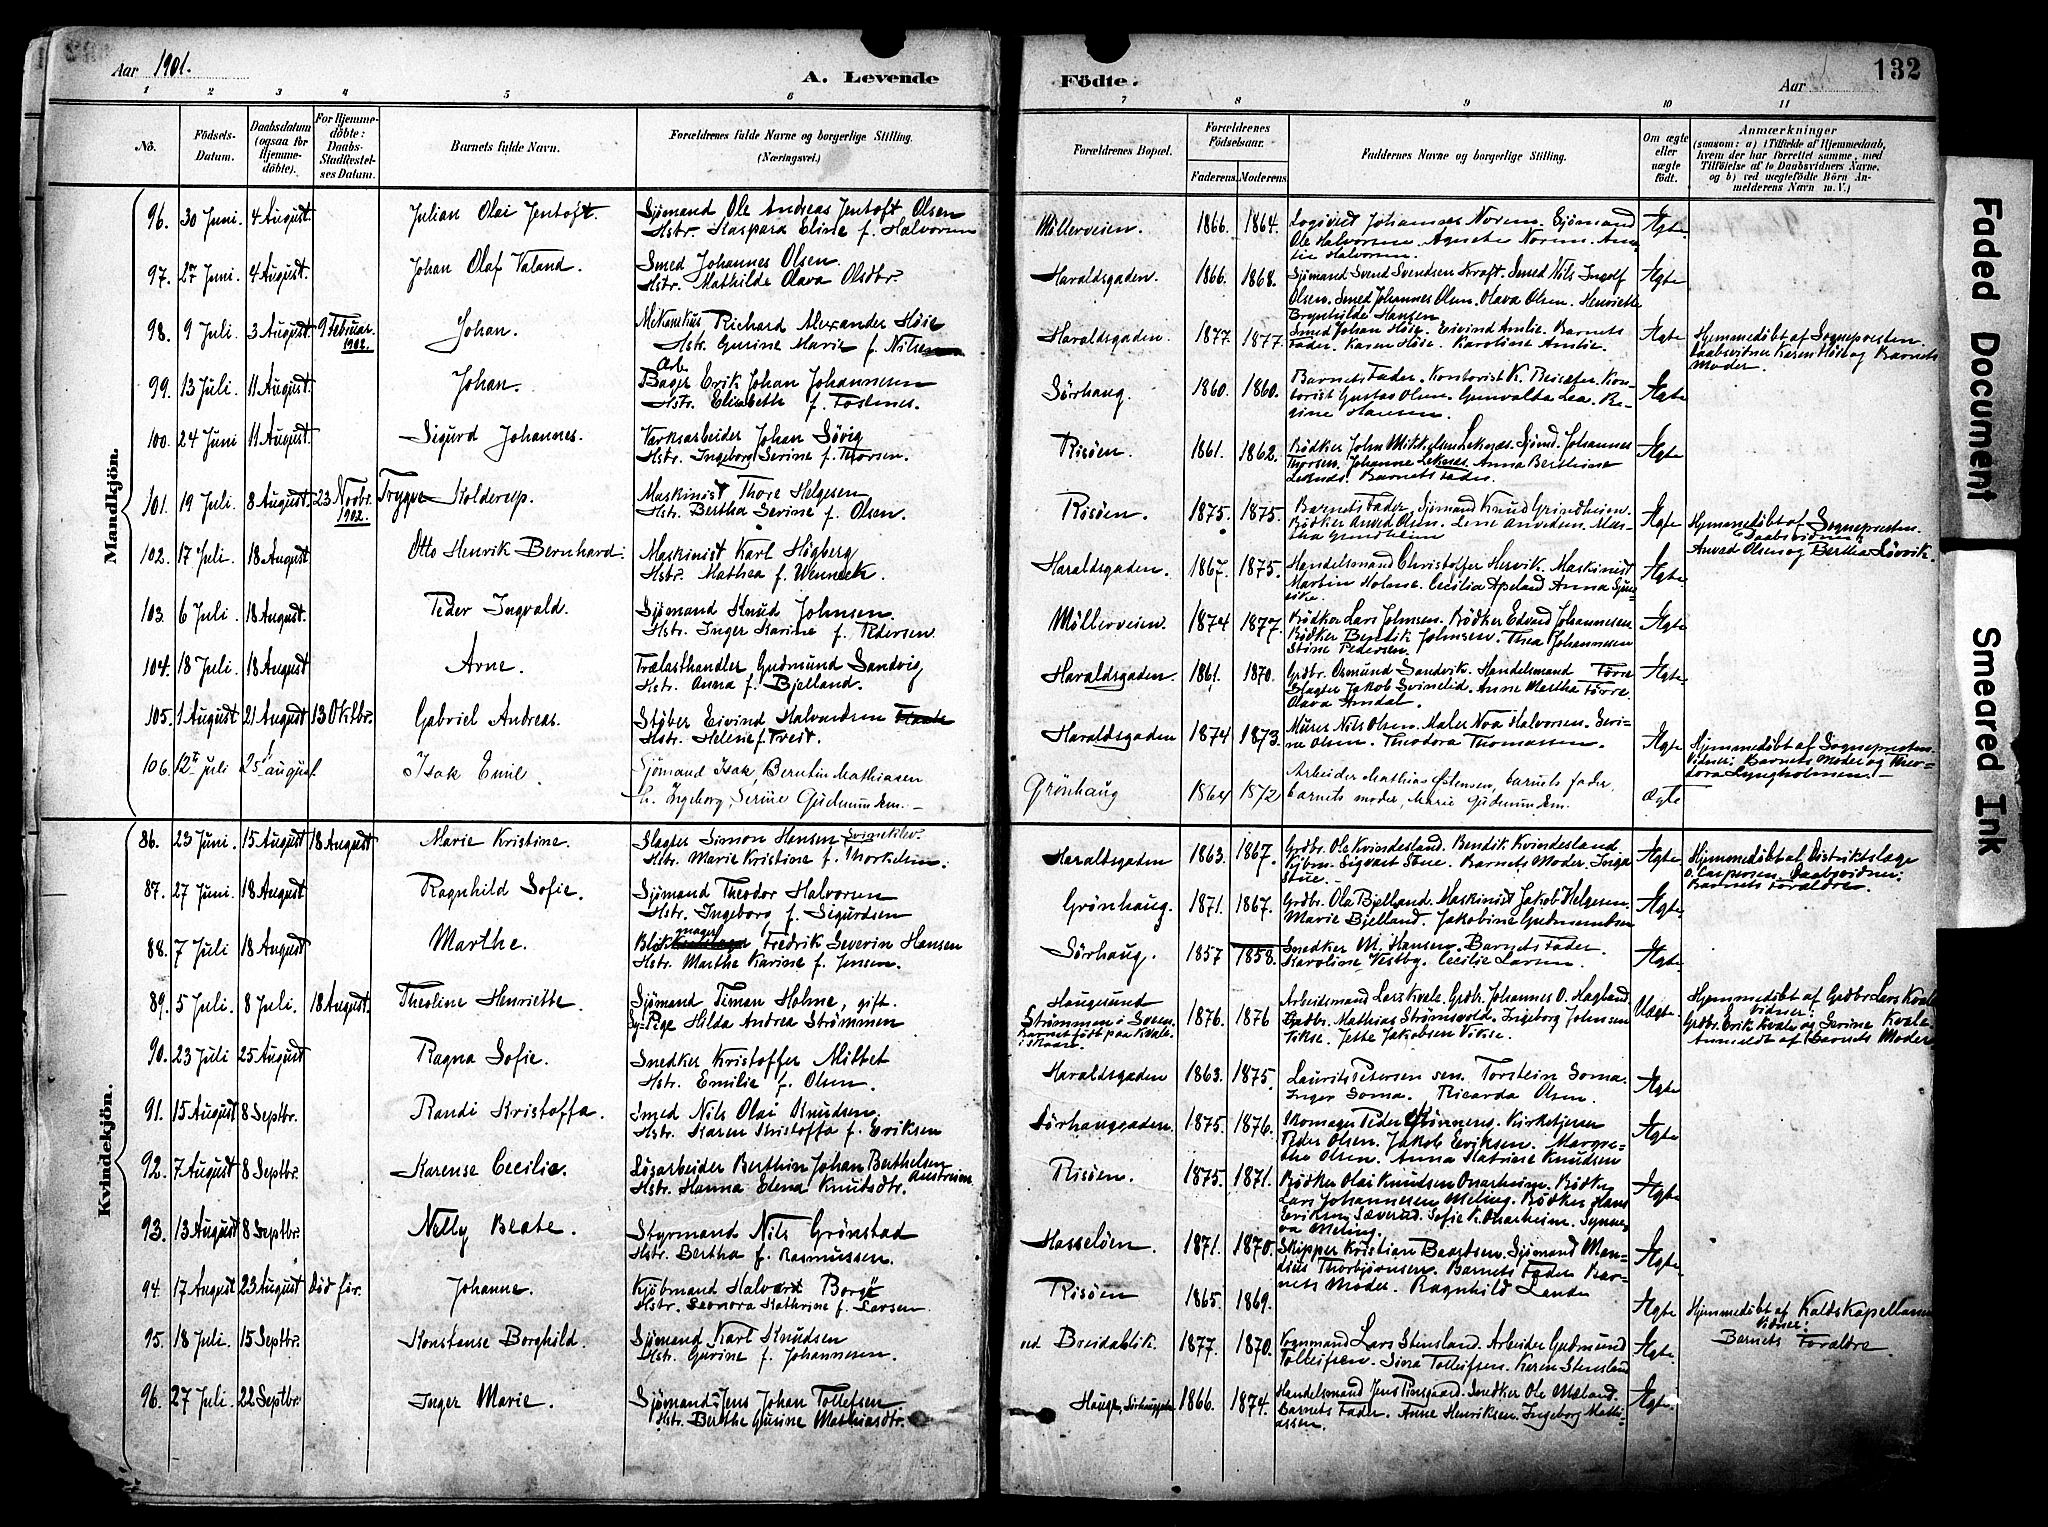 Aar 1901.
A. Levende
Födte.
Aar
132
1 2 3 4 5 6 7 8 9 10 11
No.
Födsels-Datum.
Daabsdatum (ogsaa for Hjemme-döbte).
For Hjemme-döbte: Daabs-Stadfæstel-ses Datum.
Barnets fulde Navn.
Forældrenes fulde Navne og borgerlige Stilling. (Næringsvei.)
Forældrenes Bopæl.
Forældrenes Födselsaar.
Faderens. Moderens.
Faddernes Navne og borgerlige Stilling.
Om ægte eller uægte födt.
Anmærkninger (saasom: a) i Tilfælde af Hjemmedaab, hvem der har forrettet samme, med Tilföielse af to Daabsvidners Navne. og b) ved uægtefödte Börn An-melderens Navn m. V.)
Mandkjön.
96. 30 Juni. 4 August. Julian Olai Jentoft. Sjömand Ole Andreas Jentoft Olsen
Hstr. Kaspara Eline f. Halvorsen
Möllerveien. 1866. 1864. Johannes Norem. Sjömand
Ole Halvorsen. Agnete Norem.
Halvorsen. Ægte
97. 27 Juni. 4 August. Johan Olaf Valand. Smed Johannes Olsen.
Hstr. Mathilde Olava Olsdtr.
Haraldsgaden. 1866. 1868. Sjömand Svend Svendsen Kroft. Smed Nils Ingolf
Olsen. Smed Johannes Olsen. Olava Olsen. Henriette
Brynhilde Hansen Ægte
98. 9 Juli. 3 August. 9 Februar 1902. Johan. Mekanikus Richard Alexander Höie
Hstr. Gurine Marie f. Nilsen
Haraldsgaden. 1877. 1877. Smed Johan Höie. Eivind Amlie. Barnets
Fader. Karen Höie. Karoline Amlie. Ægte
Hjemmedöbt af Sognepresten.
Daabsvidner Karen Höie og Barnets
Moder.
99. 13 Juli. 11 August. Johan. Arb.
Bager Erik Johan Johannesen
Hstr. Elisabeth f. Fosenes.
Sörhaug. 1860. 1860. Barnets Fader. Kontorist K. Reisæter. Kon-
torist Gustav Olsen. Gunvalda Lea. Re-
gine Hansen. Ægte
100. 24 Juni 11 August. Sigurd Johannes. Værksarbeider Johan Sövig
Hstr. Ingeborg Serine f. Thorsen.
Risöen. 1861. 1862. Bödker John Mikkelsen Leknæs. Sjömd. Johannes
Thorsen. Johanne Leknes. Anna Berthine
Leknes. Barnets Fader. Ægte
101. 19 Juli. 8 August. 23 Novbr. 1902. Trygve Kolderup. Maskinist Thore Helgesen
Hstr. Bertha Serine f. Olsen.
Risöen. 1875. 1875. Barnets Fader. Sjömand Knud Grindheim.
Bödker Anved Olsen. Lene Anvedsen. Mar-
tha Grindheim Ægte
Hjemmedöbt af Sognepresten.
Daabsvidner:
Anved Olsen og Bertha Lövvik.
102. 17 Juli. 18 August. Otto Henrik Bernhard. Maskinist Karl Högberg
Hstr. Mathea f. Wenneck.
Haraldsgaden. 1867. 1875. Handelsmand Christoffer Hervik. Maskinist
Martin Holme. Cecilia Apeland. Anna Ægte
103. 6 Juli. 18 August. Peder Ingvald. Sjömand Knud Johnsen.
Hstr. Inger Karine f. Pedersen.
Möllerveien. 1874 1877. Bödker Lars Johnsen. Bödker Edvard Johannesen.
Bödker Bendik Johnsen. Thea Johannesen
Stine Pedersen. Ægte
104. 18 Juli. 18 August. Arne. Trælasthandler Gudmund Sandvig
Hstr. Anna f. Bjelland.
Haraldsgaden. 1861. 1870. Grdbr. Osmund Sandvik. Handelsmand Förre
Slagter Jakob Svinelid. Anne Martha Förre.
Olava Amdal. Ægte
105. 1 August 21 August. 13 Oktbr. Gabriel Andreas. Stöber Eivind Halvardsen
Hstr. Helene f. Tveit.
Haraldsgaden 1874 1873. Murer Nils Olsen. Maler Noa Halvorsen. Seri-
ne Olsen. Theodora Thomassen. Ægte
Hjemmedöbt af Sognepresten.
Vidner: Barnets Moder og Theo-
dora Lyngholmen.
106. 12te juli 25 august. Isak Emil. Sjömand Isak, Berntin Mathiasen
h. Ingeborg, Serine Gudmundsen.
Grönhaug 1864 1872 Arbeider Mathias Östensen, barnets fader,
barnets moder, Marie Gudmundsen. ægte
Kvindekjön.
86. 23 Juni. 15 August 18 August Marie Kristine. Slagter Simon Hansen Svineklev.
Hstr. Marie Kristine f. Thorkelsen.
Haraldsgaden 1863. 1867. Grdbr. Ole Kvindesland. Bendik Kvindesland
Kjbm. Sigvart Stue. Barnets Moder. Inga
Stue. Ægte
Hjemmedöbt af Distriktslæge
O. Caspersen. Daabsvidner:
Barnets Forældre.
87. 27 Juni. 18 August. Ragnhild Sofie. Sjömand Theodor Halvorsen
Hstr. Ingeborg f. Sigurdsen
Grönhaug. 1871. 1867. Grdbr. Ola Bjelland. Maskinist Jakob Helgesen.
Marie Bjelland. Jakobine Gudmundsen Ægte
88. 7 Juli 18 August. Marthe. Blokmager Fredrik Severin Hansen
Hstr. Marthe Karine f. Jensen.
Sörhaug. 1857 1858. Snedker M. Hansen. Barnets Fader.
Karoline Vestby. Cecilie Larsen. Ægte
89. 5 Juli. 8 Juli. 18 August. Theoline Henriette. Sjömand Timan Holme, gift.
Pige Hilda Andrea Strömmen
Haugesund
Strömmen i Sveen.
Barnet födt paa Kvale
i Skaare 1876. 1876 Arbeidsmand Lars Kvale. Grdbr. Johannes O. Hagland
Grdbr. Mathias Strömsvold. Ingeborg Johnsen
Vikse. Jette Jakobsen Vikse. Uægte
Hjemmedöbt af Grdbr Lars Kvale
Vidner:
Grdbr. Erik Kvale og Serine Kvale.
Anmeldt af Barnets Moder
90. 23 Juli 25 August. Ragna Sofie. Snedker Kristoffer Miltet
Hstr. Emilie f. Olsen.
Haraldsgaden 1863. 1875. Laurits Petersen sen. Torstein Soma.
Inger Soma. Ricarda Olsen. Ægte
91. 15 August 8 Septbr. Randi Kristoffa. Smed Nils Olai Knudsen.
Hstr. Karen Kristoffa f. Eriksen
Sörhauggaden. 1875. 1876. Skomager Peder Grönneng. Kirketjener
Peder Olsen. Jakob Eriksen. Margre-
the Olsen. Anna Katrine Knudsen Ægte
92. 7 August 8 Septbr. Karense Cecilie. Lösarbeider Berthin Johan Berthelsen Austreim.
Hstr. Hanna Edena Knutsdtr.
Risöen. 1875. 1871. Bödker Olai Knudsen Onarheim. Bödker
Lars Johannesen Meling. Bödker Hans
Eriksen Sæverud. Sofie K. Onarheim. Synne-
va Meling. Ægte
93. 13 August 8 Septbr. Nelly Beate. Styrmand Nils Grönstad
Hstr. Bertha f. Rasmussen.
Hasselöen. 1871. 1870. Skipper Kristian Baardsen. Sjömand Man-
dius Thorbjörnsen. Barnets Fader. Bar-
nets Moder. Ragnhild Lande Ægte
94. 17 August 23 August Död för. Johanne. Kjöbmand Halvard Borge
Hstr. Leonora Kathrine f. Larsen.
Risöen 1865. 1869. Ægte
Hjemmedöbt af Kaldskapellanen
Vidner:
Barnets Forældre.
95. 18 Juli. 15 Septbr. Konstanse Borghild. Sjömand Karl Knudsen
Hstr. Gurine f. Johannesen.
ved Breidablik. 1877. 1870. Vognmand Lars Stensland. Arbeider Gudmund
Tolleifsen. Sina Tolleifsen. Karen Stensland Ægte
96. 27 Juli. 22 Septbr. Inger Marie. Sjömand Jens Johan Tollefsen
Hstr. Berthe Gurine Mathiasdtr.
1866. 1874. Handelsmand Jens Risgaard. Snedker Ole Mæland.
Barnets Fader. Anne Henriksen. Ingeborg Mathi-
assen. Ægte
Faded Document
Smeared Ink